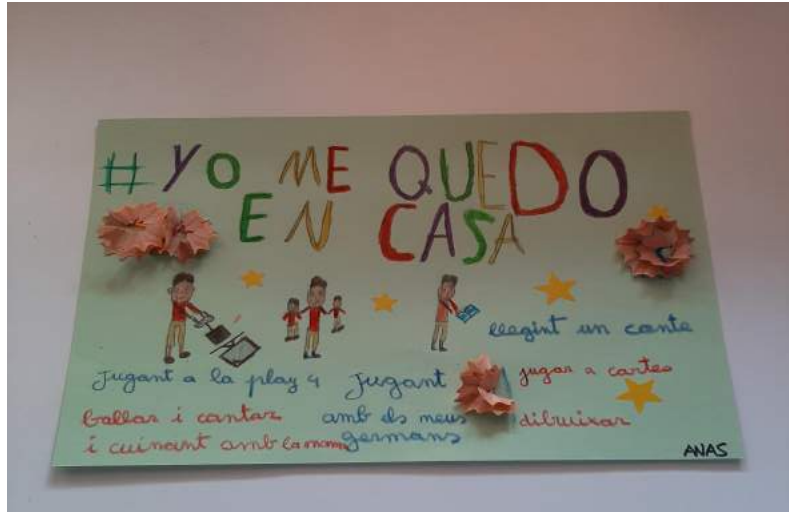 # YO ME QUEDO
EN CASA
llegint un conte
Jugant a la play 4
Jugant
amb els meus
germans
jugar a cartes
ballar i cantar
i cuinant amb la mama
dibuixar
ANAS